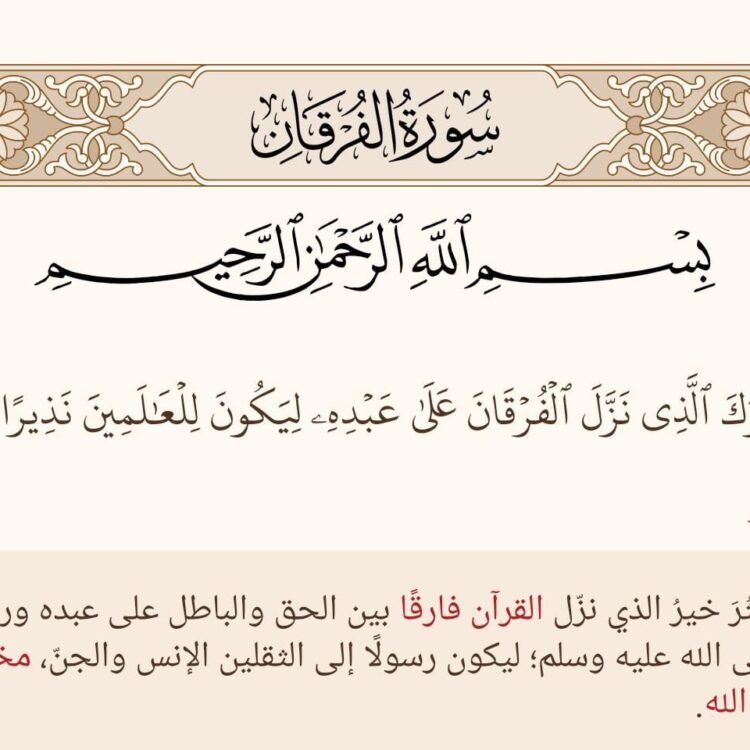 سُورَةُ الْفُرْقَانِ
بِسْمِ ٱللَّهِ ٱلرَّحْمَٰنِ ٱلرَّحِيمِ
ٱلَّذِى نَزَّلَ ٱلْفُرْقَانَ عَلَىٰ عَبْدِهِۦ لِيَكُونَ لِلْعَـٰلَمِينَ نَذِيرًا
خيرُ الذي نزّل القرآن فارقًا بين الحق والباطل على عبده
الله عليه وسلم؛ ليكون رسولًا إلى الثقلين الإنس والجنّ،
الله.